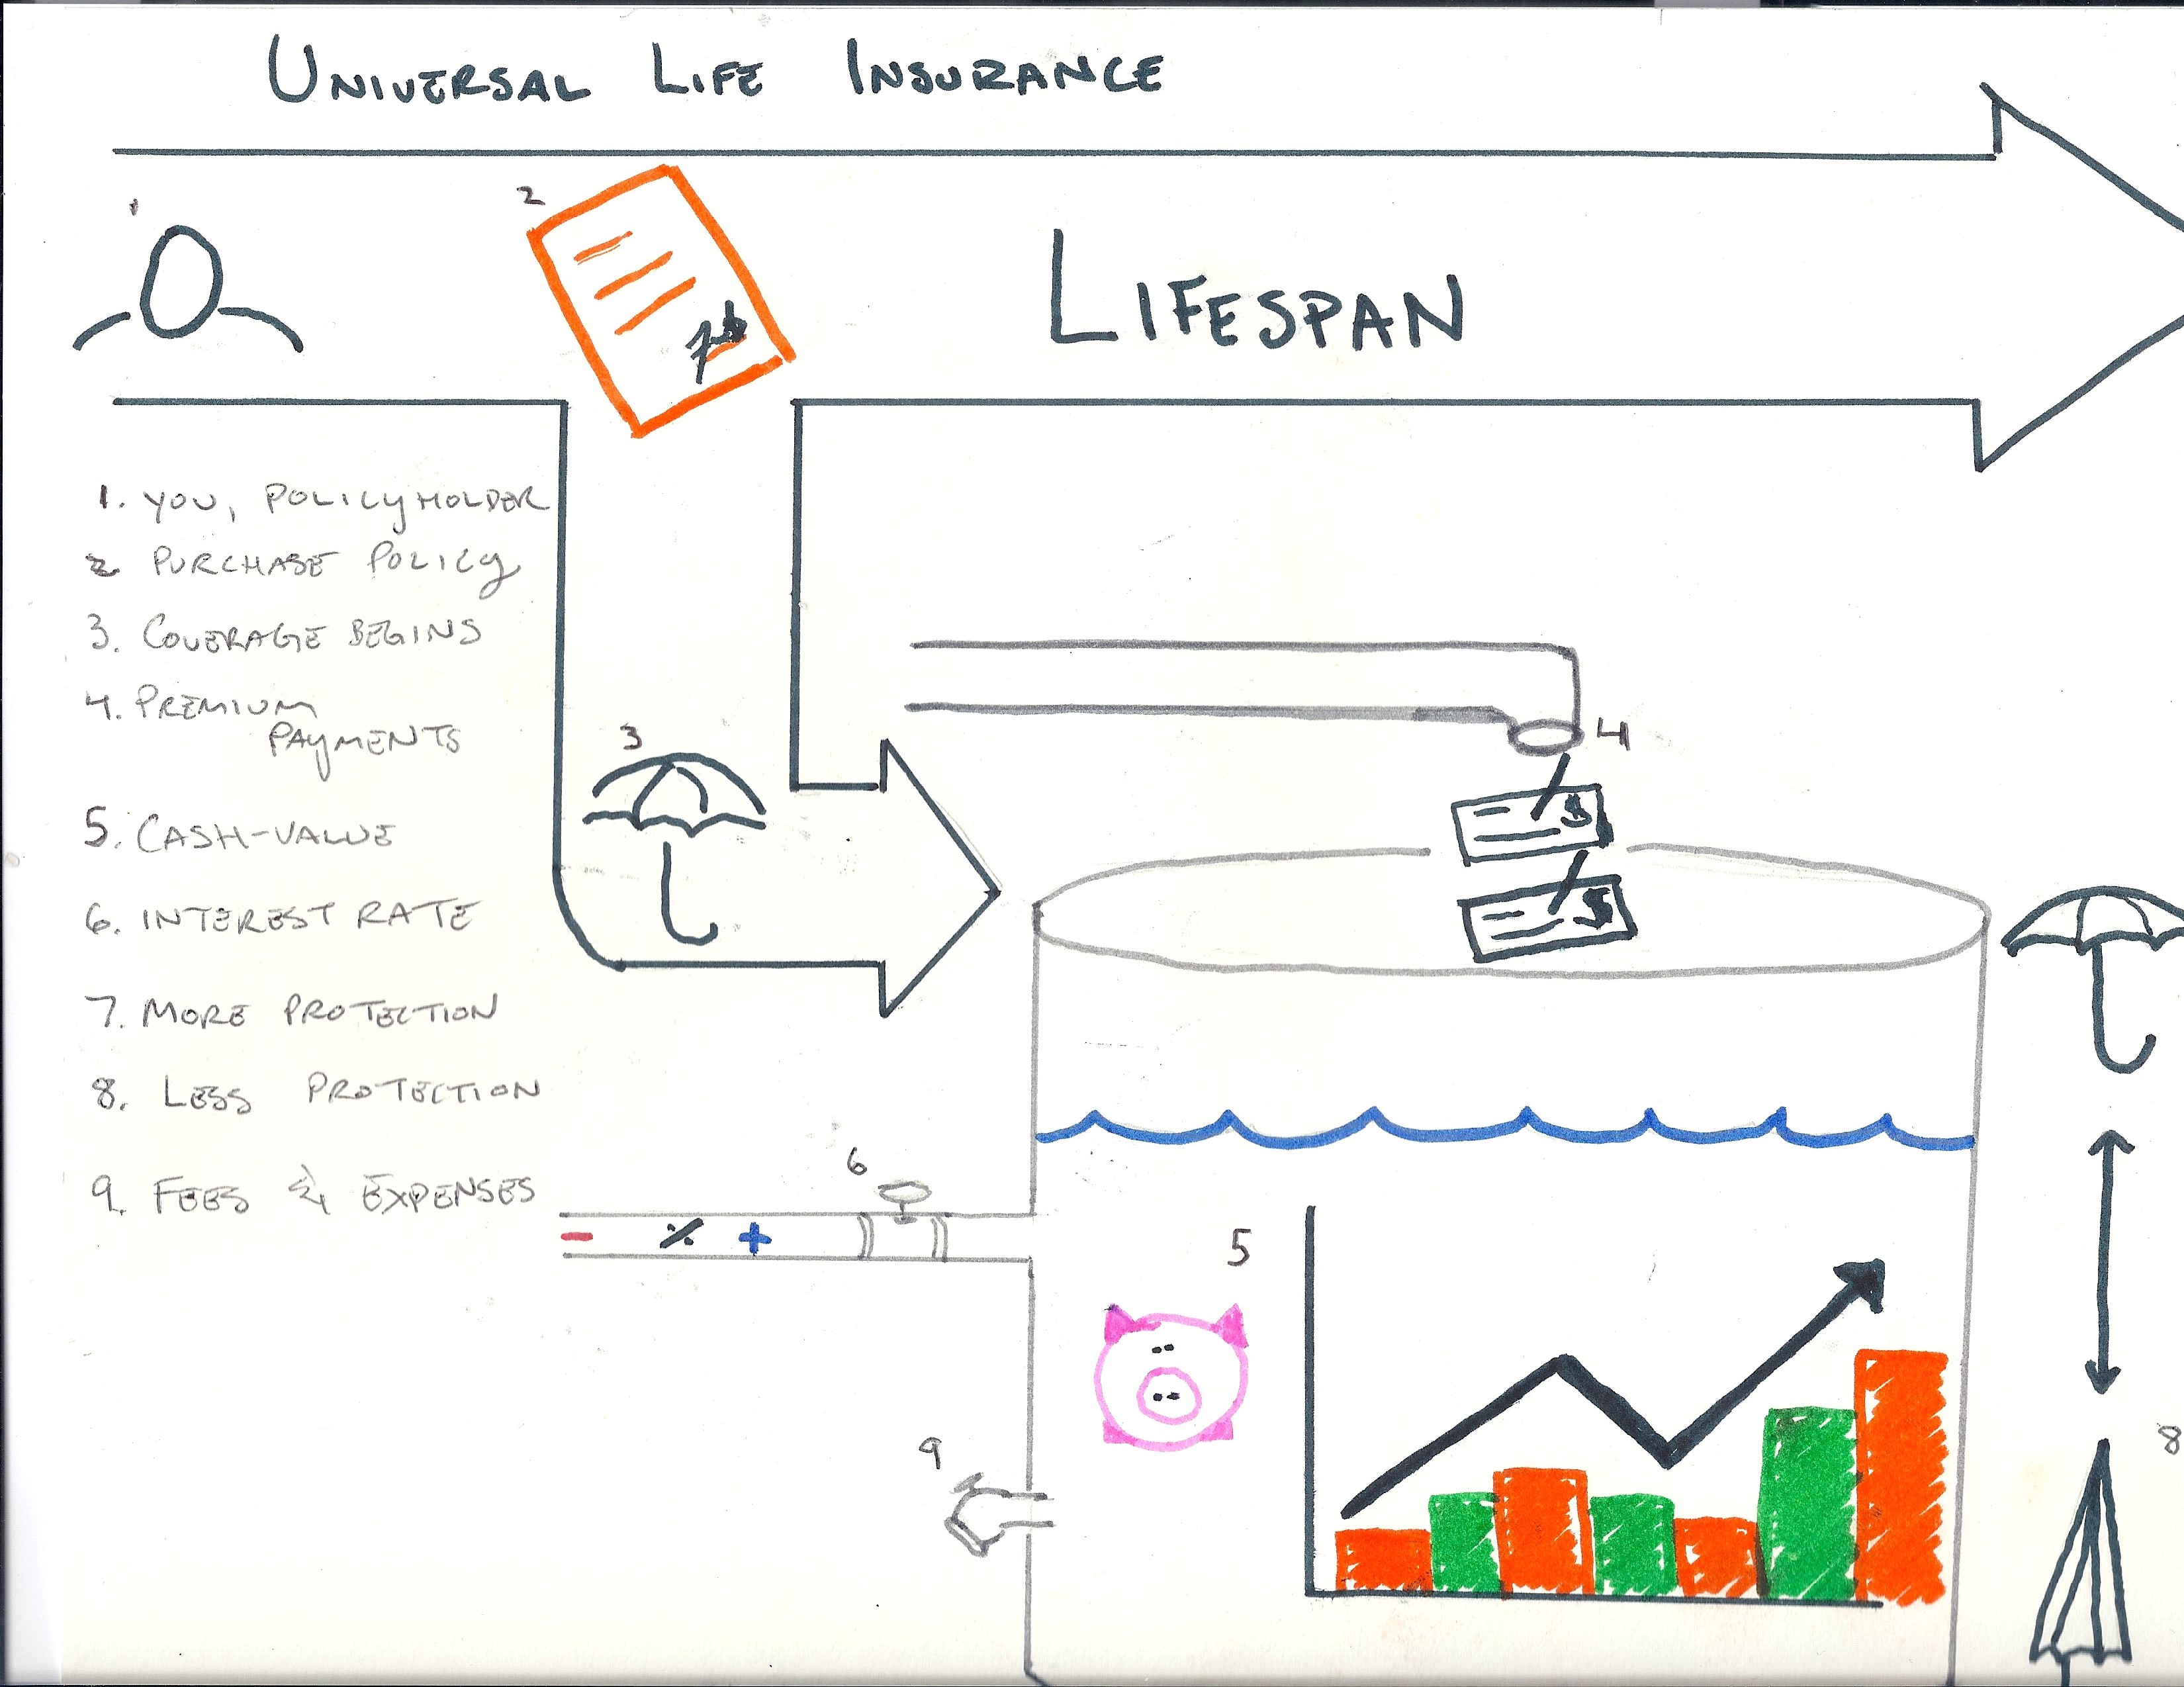 UNIVERSAL LIFE INSURANCE
1
2
LIFESPAN
1. YOU, POLICYHOLDER
2 PURCHASE POLICY
3. COVERAGE BEGINS
4. PREMIUM
PAYMENTS
5. CASH-VALUE
6. INTEREST RATE
7. MORE PROTECTION
8. LESS PROTECTION
9. FEES & EXPENSES
3
4
$
$
6
- % +
5
9
8